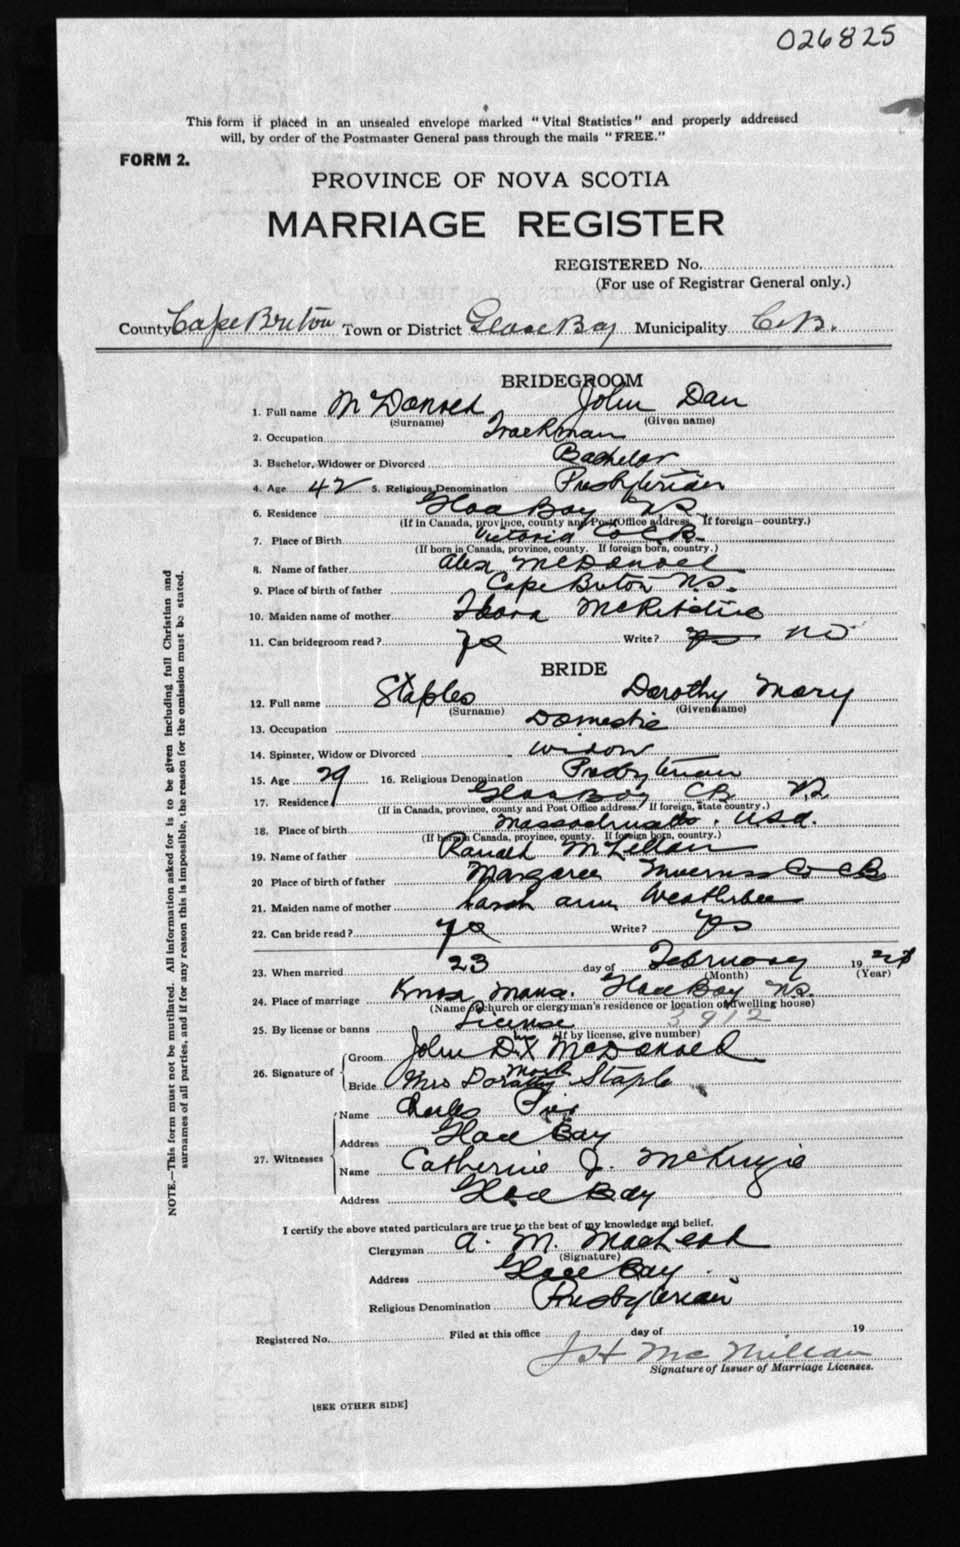 026825
This form if placed in an unsealed envelope marked "Vital Statistics" and properly addressed
will, by order of the Postmaster General pass through the mails "FREE."
FORM 2.
PROVINCE OF NOVA SCOTIA
MARRIAGE REGISTER
REGISTERED No.
(For use of Registrar General only.)
County Cape Breton Town or District Glace Bay Municipality C.B.
BRIDEGROOM
1. Full name McDonald John Dan
(Surname) (Given name)
2. Occupation Trackman
3. Bachelor, Widower or Divorced Bachelor
4. Age 42 5. Religious Denomination Presbyterian
6. Residence Glace Bay N.S.
(If in Canada, province, county and Post Office address. If foreign—country.)
7. Place of Birth Victoria Co C.B.
(If born in Canada, province, county. If foreign born, country.)
8. Name of father Alex McDonald
9. Place of birth of father Cape Breton N.S.
10. Maiden name of mother McRitchie
11. Can bridegroom read? yes Write? yes no
BRIDE
12. Full name Staples Dorothy Mary
(Surname) (Given name)
13. Occupation Domestic
14. Spinster, Widow or Divorced widow
15. Age 29 16. Religious Denomination Presbyterian
17. Residence Glace Bay CB N.S.
(If in Canada, province, county and Post Office address. If foreign, state country.)
18. Place of birth Massachusetts. U.S.A.
(If born in Canada, province, county. If foreign born, country.)
19. Name of father Ranald McLellan
20 Place of birth of father Margaree Inverness Co CB
21. Maiden name of mother Sarah Ann Weatherbee
22. Can bride read? yes Write? yes
23. When married 23 day of February 19
(Month) (Year)
24. Place of marriage Knox Manse. Glace Bay N.S.
(Name of church or clergyman's residence or location of dwelling house)
25. By license or banns License 3912
(If by license, give number)
26. Signature of Groom John D. his X McDonald
mark
Bride Mrs Dorothy Staple
27. Witnesses Name Charles
Address Glace Bay
Name Catherine J. McKenzie
Address Glace Bay
I certify the above stated particulars are true to the best of my knowledge and belief.
Clergyman A. M. MacLeod
(Signature)
Address Glace Bay
Religious Denomination Presbyterian
Registered No. Filed at this office day of 19
J H McMillan
Signature of Issuer of Marriage Licenses.
[SEE OTHER SIDE]
NOTE.—This form must not be mutilated. All information asked for is to be given including full Christian and
surnames of all parties, and if for any reason this is impossible, the reason for the omission must be stated.